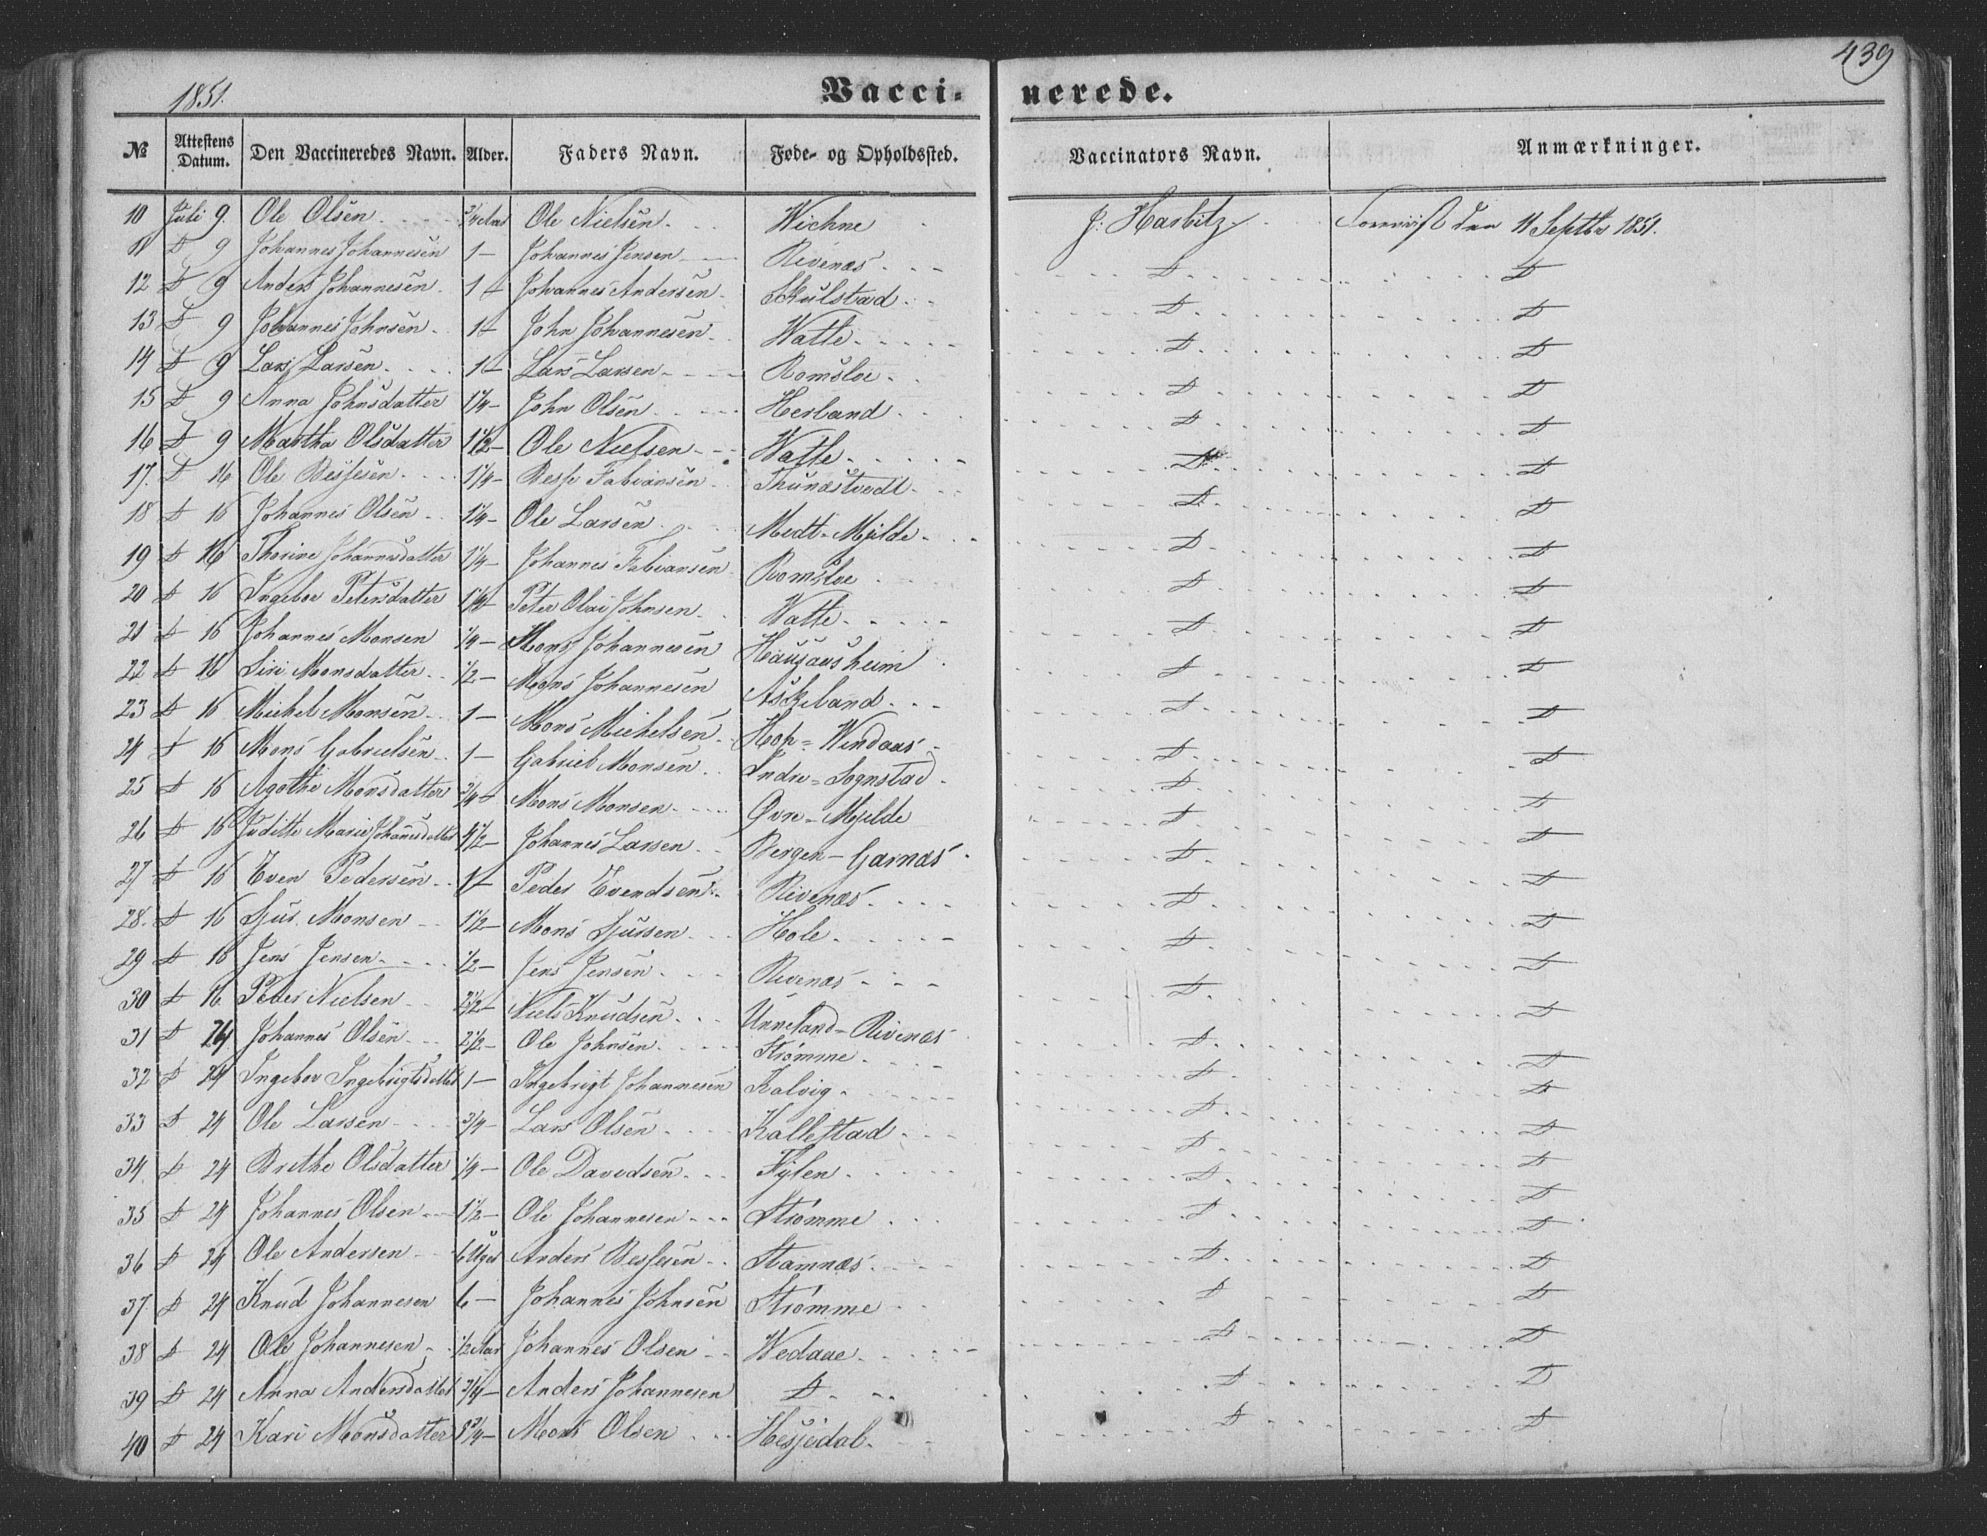 439
1851.
Vacci- nerede.
№ Attestens Datum. Den Vaccineredes Navn. Alder. Faders Navn. Føde- og Opholdssted. Vaccinators Navn. Anmærkninger.
10 Juli 9. Ole Olsen 3/4 Aar Ole Nielsen Wichne J: Harbitz Foreviist den 11 Septbr 1851.
11 D 9 Johannes Johannesen 1 - Johannes Jensen Rivenæs D D
12 D 9 Anders Johannesen 1 - Johannes Andersen Skulstad D D
13 D 9 Johannes Johnsen 1 - John Johannesen Watle D D
14 D 9 Lars Larsen 1 - Lars Larsen Romsloe D D
15 D 9 Anna Johnsdatter 1 1/4 - John Olsen Herland D D
16 D 9 Martha Olsdatter 1 1/2 - Ole Nielsen Watle D D
17. D 16 Ole Bessesen 1 1/4 - Besse Fabiansen Thunæstvedt D D
18 D 16 Johannes Olsen 1 1/4 - Ole Larsen Medt-Mjelde D D
19 D 16 Thorine Johannesdatter 1 1/4 - Johannes Fabiansen Romsloe D D
20 D 16 Ingebor Petersdatter 1 1/4 - Peter Olai Johnsen Watle D D
21 D 16 Johannes Monsen 1/4 - Mons Johannesen Haugausheim D D
22 D 16 Siri Monsdatter 1/2 - Mons Johannesen Askeland D D
23 D 16 Michel Monsen 1 - Mons Michelsen Hop-Windaas D D
24 D 16 Mons Gabrielsen 1 - Gabriel Monsen Indre-Sognstad D D
25 D 16 Agothe Monsdatter 3/4 - Mons Monsen Øvre-Mjelde D D
26 D 16 Juditte Marie Johanesdatter 4 1/2 - Johannes Larsen Bergen-Garnæs D D
27 D 16 Even Pedersen 1 - Peder Evendsen Rivenæs D D
28. D 16 Sjur Monsen 1 1/2 - Mons Sjursen Hole D D
29 D 16 Jens Jensen 1/2 - Jens Jensen Rivenæs D D
30 D 16 Peder Nielsen 2 1/2 - Niels Knudsen Unneland-Rivenæs D D
31 D 24 Johannes Olsen 2 1/2 - Ole Johnsen Strømme D D
32 D 24 Ingebor Ingebrigtsdatter 1 - Ingebrigt Johannesen Kalvig D D
33 D 24 Ole Larsen 3/4 - Lars Olsen Kallestad D D
34. D 24 Brethe Olsdatter 1/4 - Ole Davidsen Fylen D D
35 D 24 Johannes Olsen 1 1/2 - Ole Johannesen Strømme D D
36 D 24 Ole Andersen 6 Uger Anders Bessesen Stamnæs D D
37. D 24 Knud Johannesen 6 - Johannes Johnsen Strømme D D
38 D 24 Ole Johannesen 1/2 Aar Johannes Olsen Wedaae D D
39 D 24 Anna Andersdatter 3/4 - Anders Johannesen D D D
40 D 24 Kari Monsdatter 8 3/4 - Mons Olsen Hesjedal D D